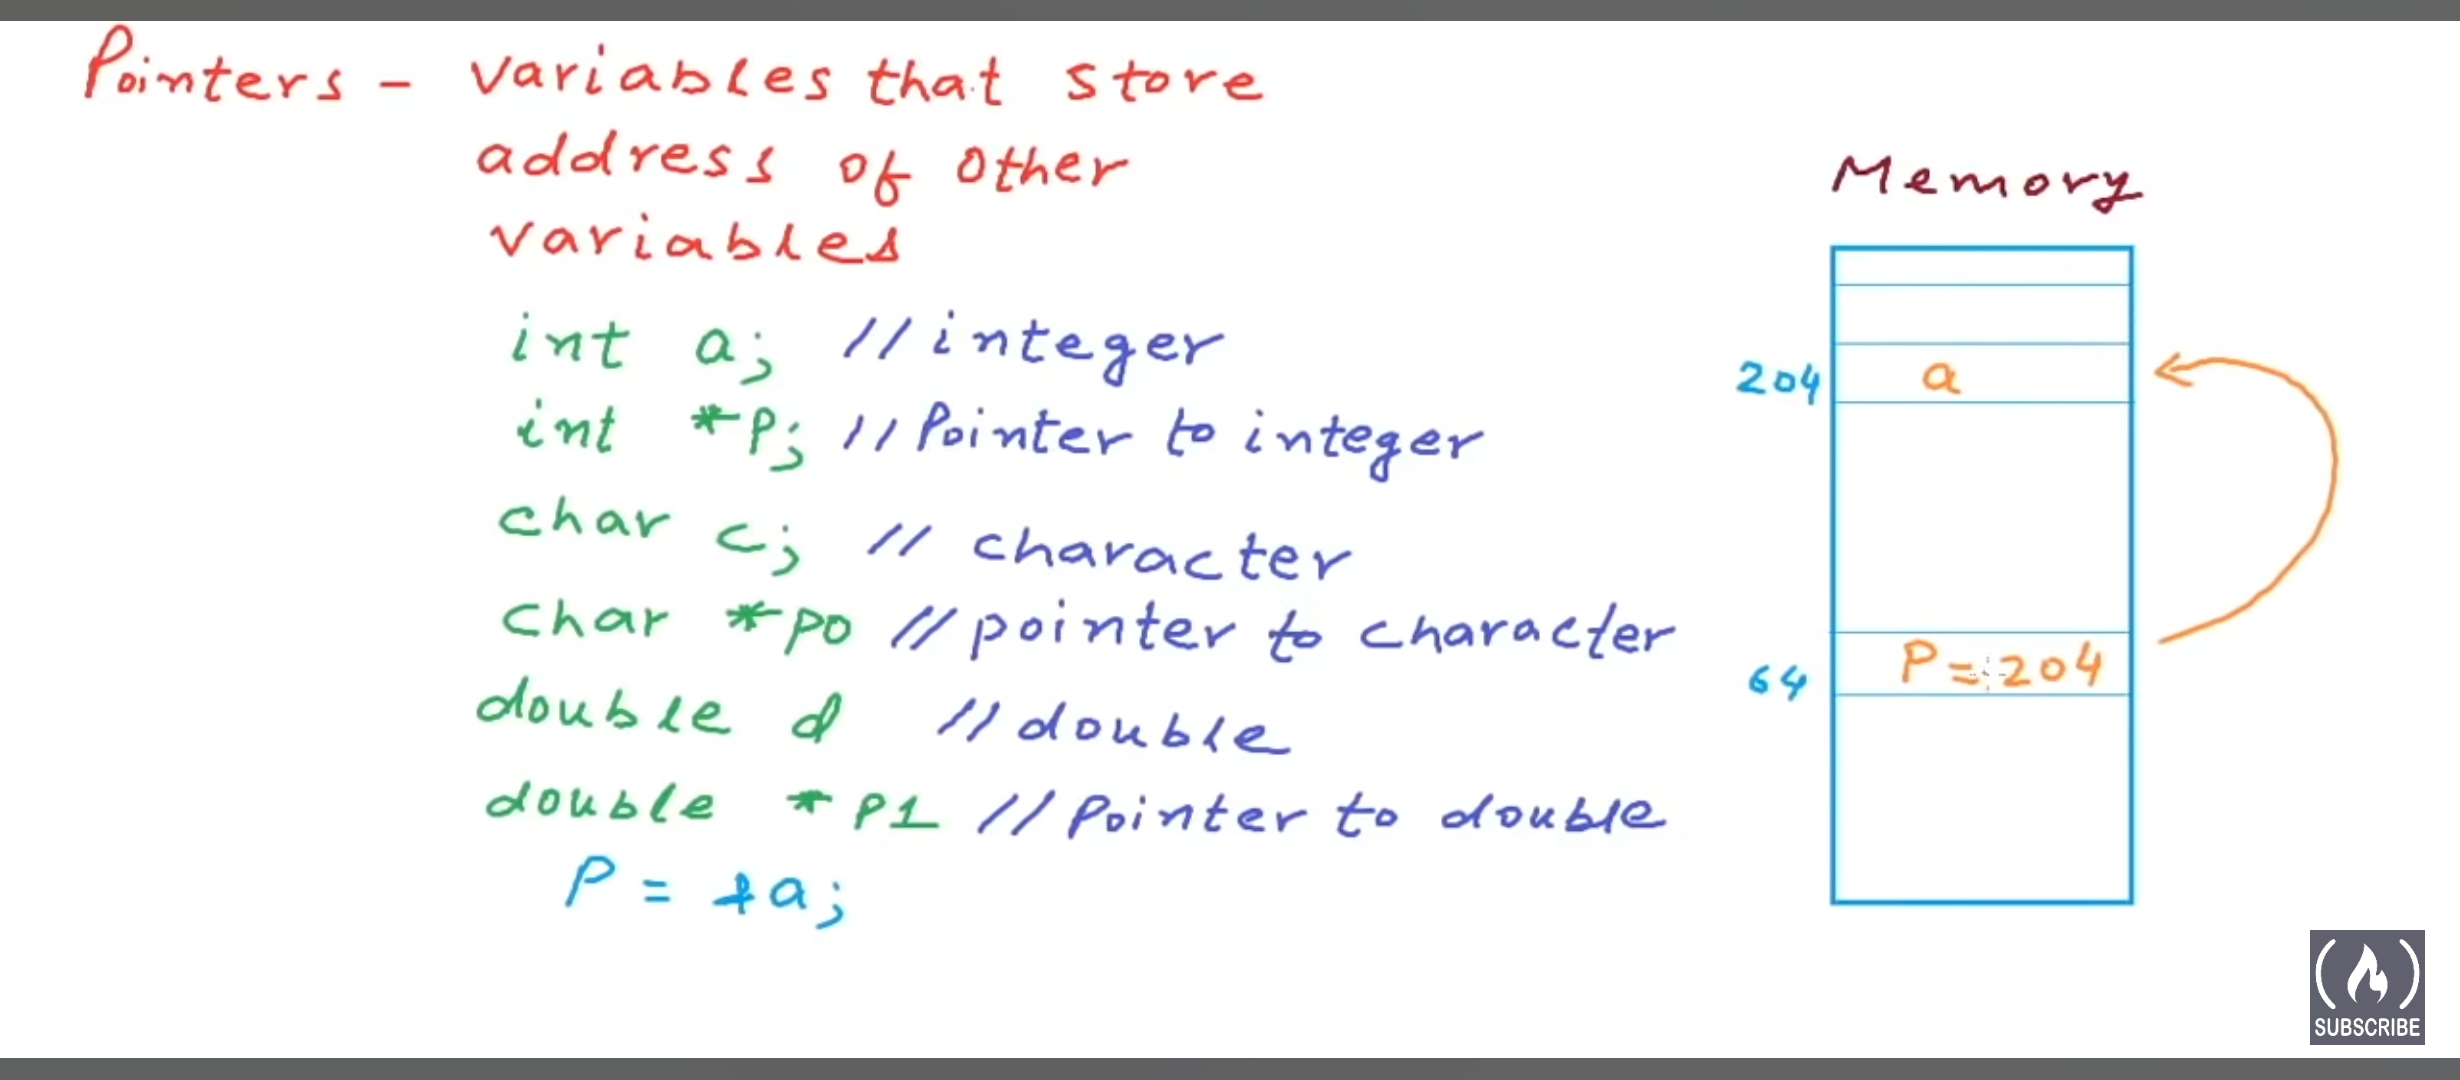 Pointers - variables that store
address of other
variables
int a; //integer
int *P; //Pointer to integer
char c; // character
char *p0 //pointer to character
double d //double
double *P1 //Pointer to double
P = &a;
Memory
204 a
64 P = 204
SUBSCRIBE